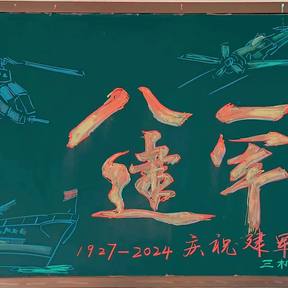 八一
建军
1927-2024 庆祝建军
三